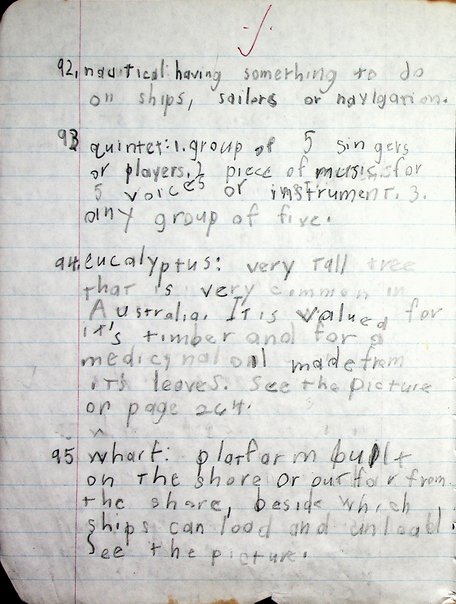 92. nautical: having something to do
on ships, sailors or navigation.
93 quintet: 1. group of 5 singers
or players. 2 piece of music for
5 voices or instrument. 3.
any group of five.
94. eucalyptus: very tall tree
that is very common in
Australia. It is valued for
it's timber and for a
medicynal oil made from
it's leaves. See the picture
on page 264.
95 wharf: platform built
on the shore or out far from
the shore, beside which
ships can load and unload.
See the picture.